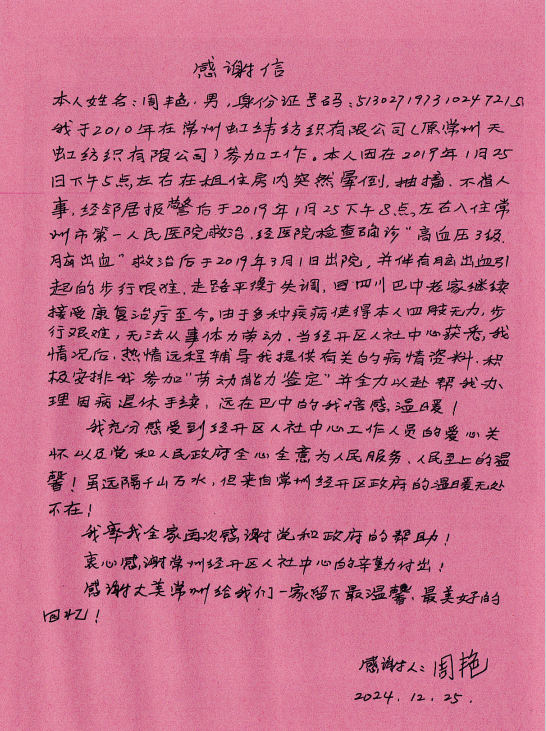 感谢信
本人姓名:周艳.男,身份证号码:513027197310247215
我于2010年在常州虹纬纺织有限公司(原常州天
虹纺织有限公司)参加工作。本人因在2019年1月25
日下午5点左右在租住房内突然晕倒.抽搐.不省人
事,经邻居报警后于2019年1月25下午8点左右入住常
州市第一人民医院救治.经医院检查确诊"高血压3级.
脑出血"救治后于2019年3月1日出院,并伴有脑出血引
起的步行艰难.走路平衡失调,回四川巴中老家继续
接受康复治疗至今。由于多种疾病使得本人四肢无力,步
行艰难,无法从事体力劳动.当经开区人社中心获悉我
情况后.热情远程辅导我提供有关的病情资料.积
极安排我参加"劳动能力鉴定"并全力以赴帮我办
理因病退休手续,远在巴中的我倍感温暖!
我充分感受到经开区人社中心工作人员的爱心关
怀以及党和人民政府全心全意为人民服务、人民至上的温
馨!虽远隔千山万水,但来自常州经开区政府的温暖无处
不在!
我率我全家再次感谢党和政府的帮助!
衷心感谢常州经开区人社中心的辛勤付出!
感谢大美常州给我们一家留下最温馨、最美好的
回忆!
感谢人:周艳
2024.12.25.